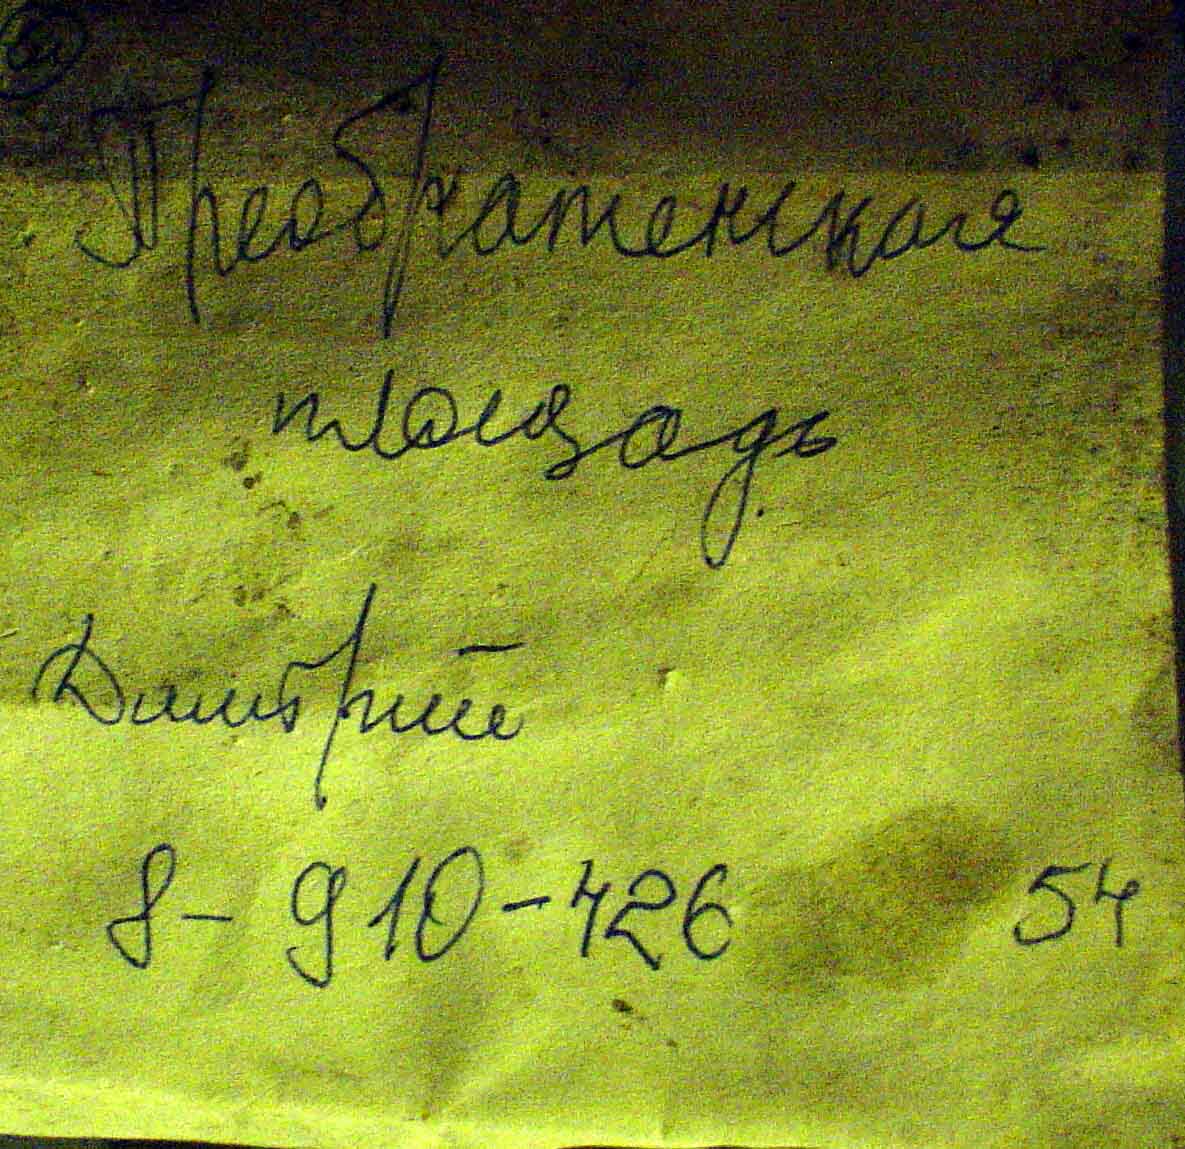 Преображенская
площадь
Дмитрий
8-910-426 54